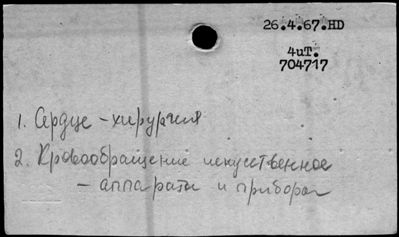 26.4.67.HD
4uT.
704717
1. Сердце - хирургия
2. Кровообращение искусственное
- аппараты и приборы